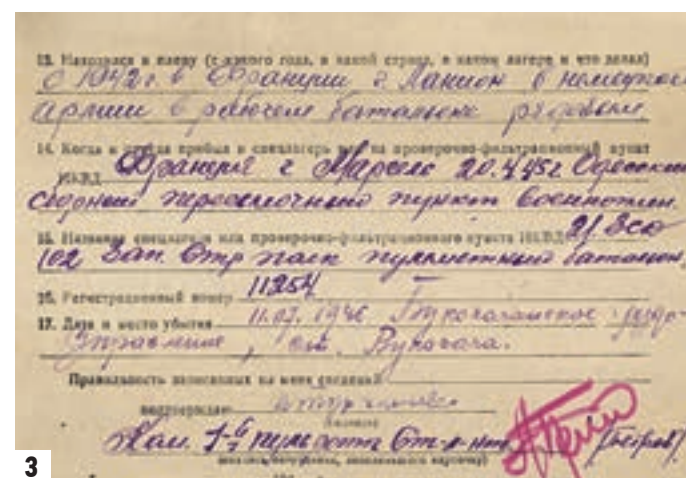 13. Находился в плену (с какого года, в какой стране, в каком лагере и что делал)
С 1942 г. в Франции г. Ланион в немецкой
армии в рабочем батальоне рядовым.
14. Когда и откуда прибыл в спецлагерь или на проверочно-фильтрационный пункт
НКВД Франция г Марсель 20.4.45г Одесский
сборный пересылочный пункт военноплен.
15. Название спецлагеря или проверочно-фильтрационного пункта НКВД 21 Зсд
102 Зап. Стр полк пулеметный батальон.
16. Регистрационный номер 11254
17. Дата и место убытия 11.07. 1946
управление, ст. Букачача.
Правильность записанных на меня сведений
подтверждаю
Нач.
(Петров)
3